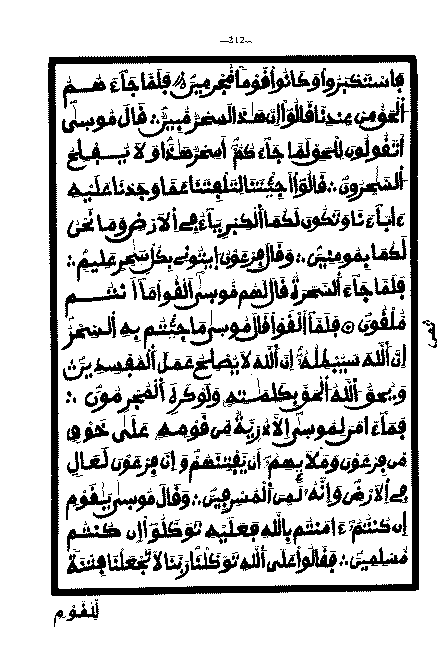 —212—
فاستكبروا وكانوا قوما مجرمين فلما جاءهم
الحق من عندنا قالوا إن هذا لسحر مبين ∴ قال موسى
أتقولون للحق لما جاءكم أسحر هذا ولا يفلح
السحرون ∴ قالوا أجئتنا لتلفتنا عما وجدنا عليه
ءاباءنا وتكون لكما الكبرياء في الأرض وما نحن
لكما بمومنين ∴ وقال فرعون ايتوني بكل سحر عليم ∴
فلما جاء السحرة قال لهم موسى ألقوا ما أنتم
ملقون فلما ألقوا قال موسى ما جئتم به السحر
إن الله سيبطله إن الله لا يصلح عمل المفسدين
ويحق الله الحق بكلمته ولو كره المجرمون ∴
فما ءامن لموسى إلا ذرية من قومه على خوف
من فرعون وملإيهم أن يفتنهم وإن فرعون لعال
في الأرض وإنه لمن المسرفين ∴ وقال موسى يقوم
إن كنتم ءامنتم بالله فعليه توكلوا إن كنتم
مسلمين ∴ فقالوا على الله توكلنا ربنا لا تجعلنا فتنة
للقوم